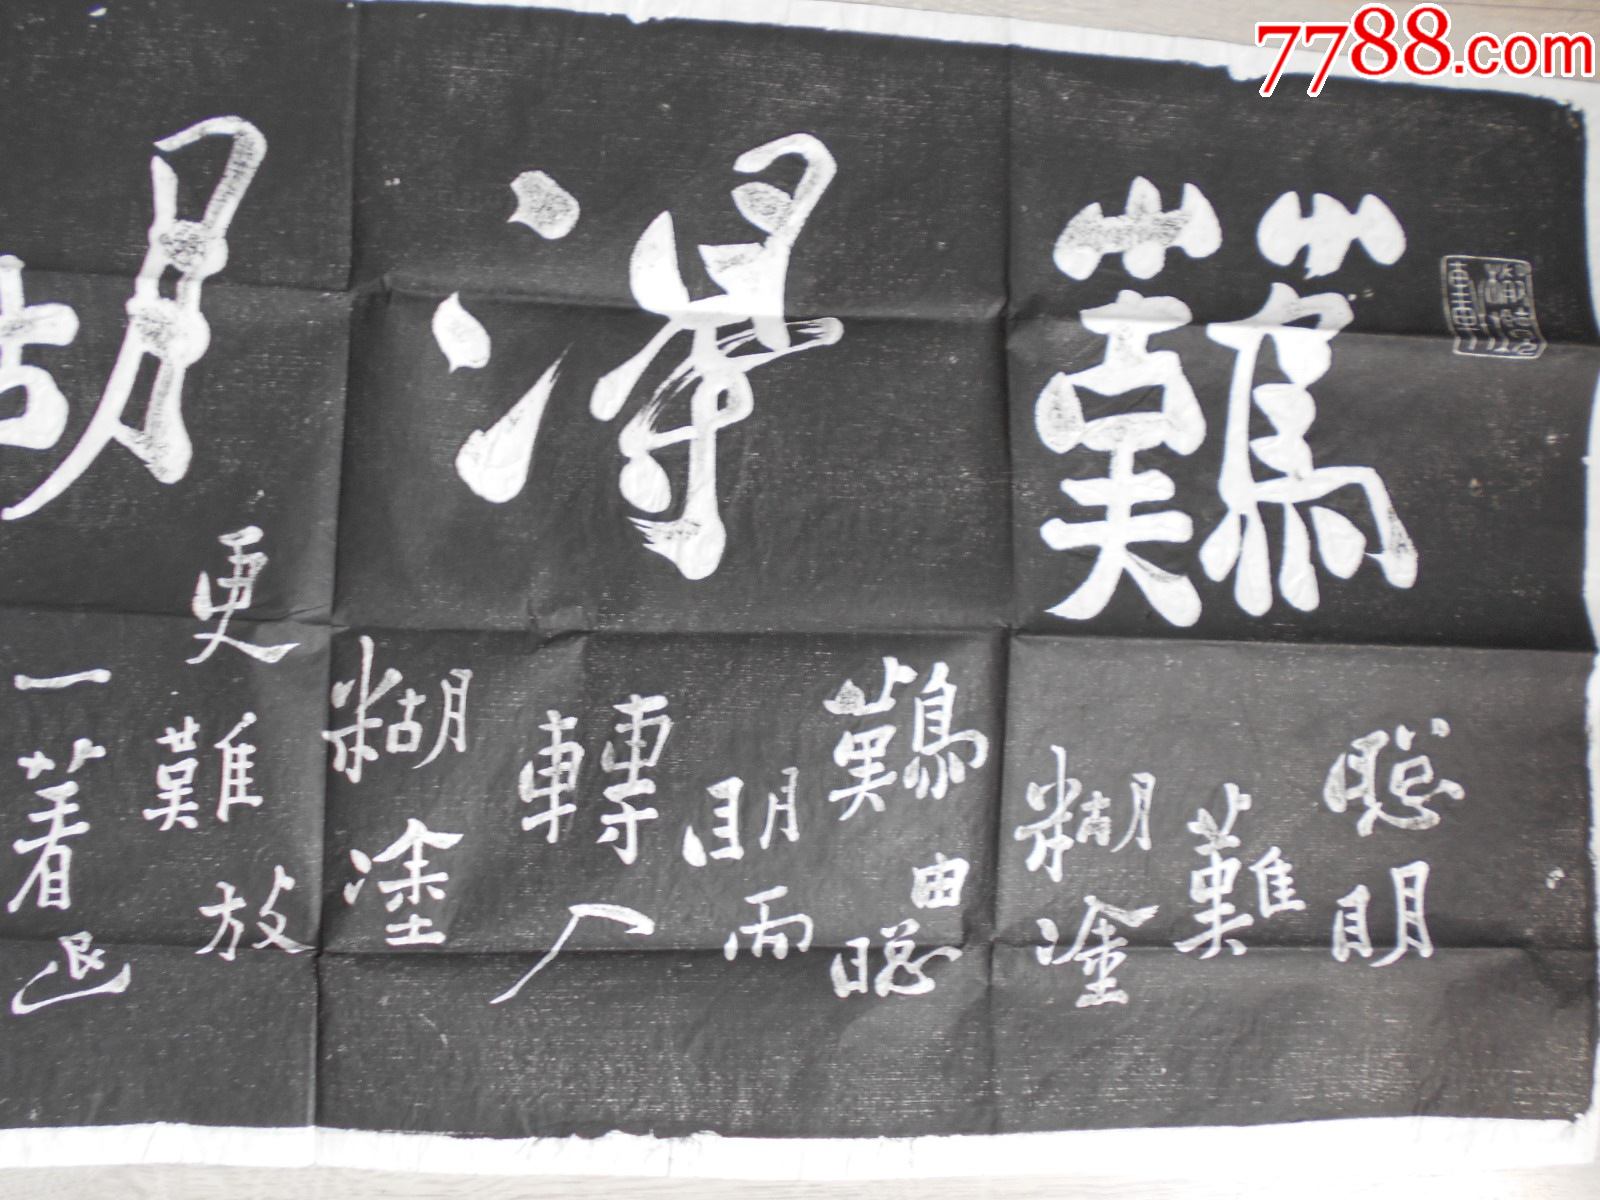 7788.com
難得糊
聰明
難
糊塗
難由聰
明而
轉入
糊塗
更難放
一著退